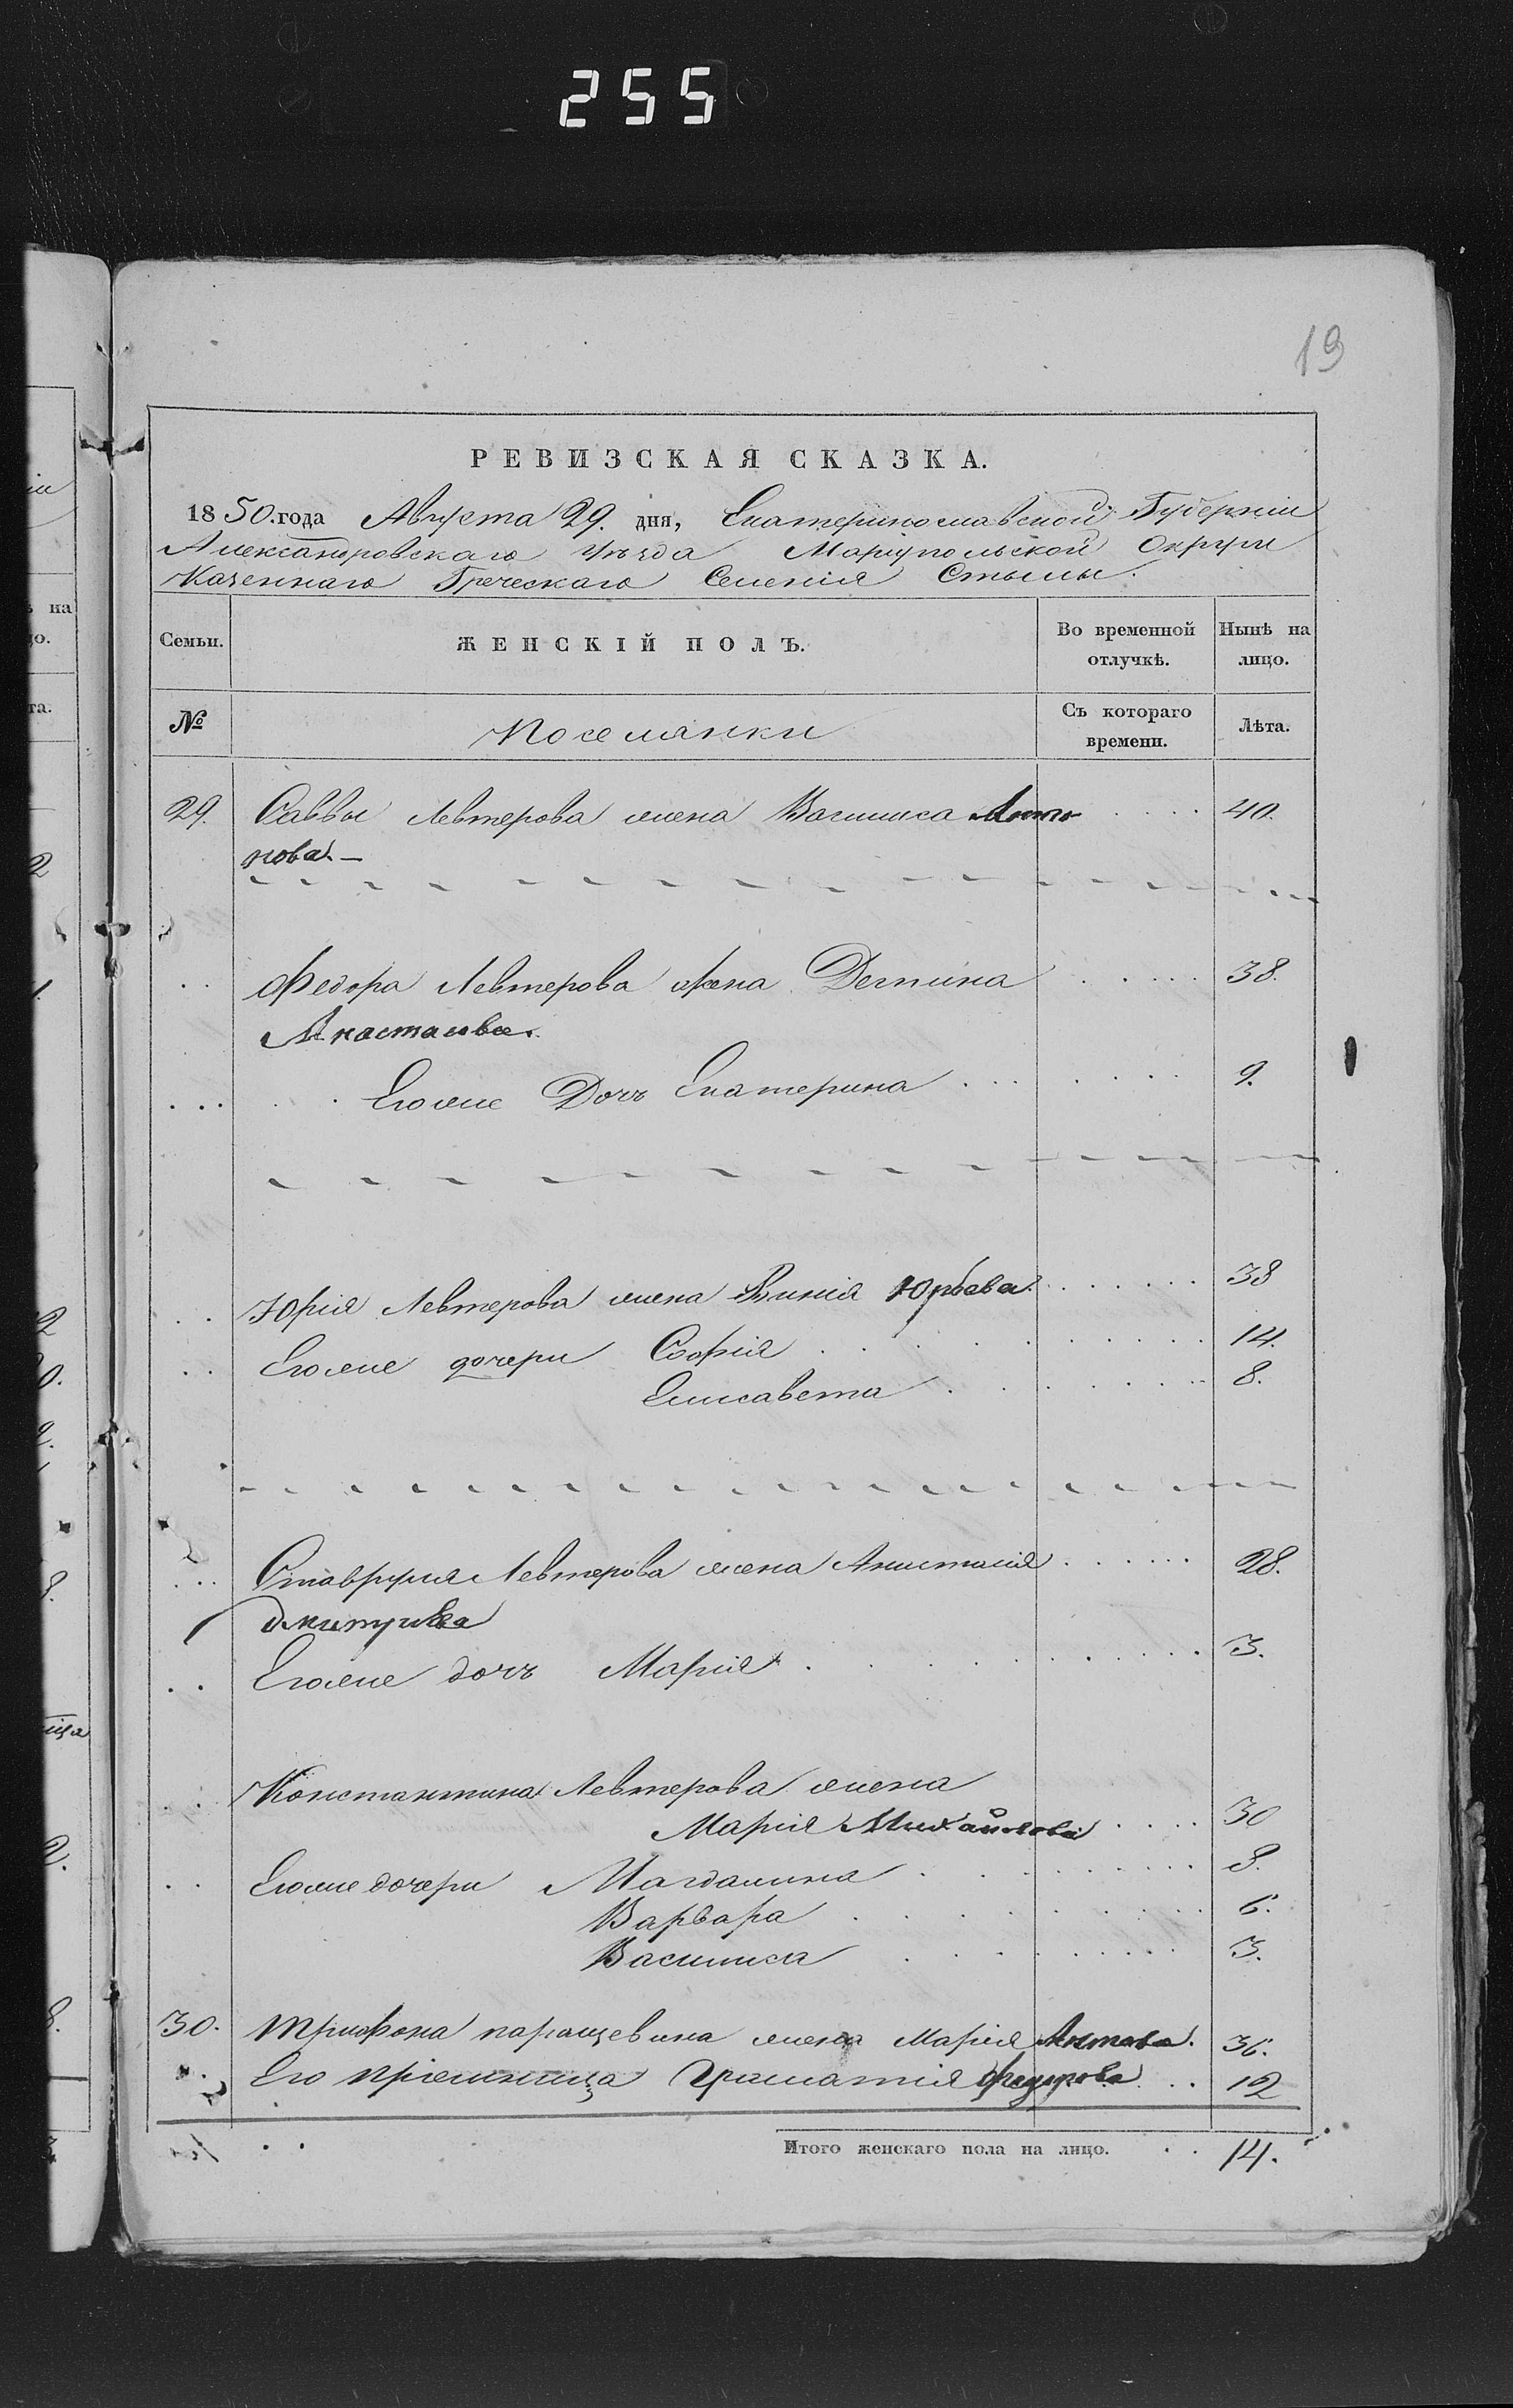 255
19
РЕВИЗСКАЯ СКАЗКА.
1850. года Августа 29. дня, Екатеринославской Губерніи
Александровскаго Уѣзда Маріупольской Округи
Казеннаго Греческаго Селенія Стылы.
Семьи. ЖЕНСКІЙ ПОЛЪ. Во временной отлучкѣ. Нынѣ на лицо.
№ Поселянки Съ котораго времени. Лѣта.
29. Саввы Левтерова жена Василиса Анто 40.
нова. —
Федора Левтерова жена 38.
Анастасова.
Егоже Дочь Екатерина 9.
Юрія Левтерова жена Юрьева 38
Егоже дочери Софія 14.
Елисавета 8.
Ставруля Левтерова жена Анастасія 28.
Дмитриева
Егоже дочь Марія 3.
Константина Левтерова жена
Марія Михайлова 30
Егоже дочери Магдалина 8.
Варвара 6.
Василиса 3.
30. Трифона жена Марія 36.
Его Пріемница Федорова 12
Итого женскаго пола на лицо. 14.